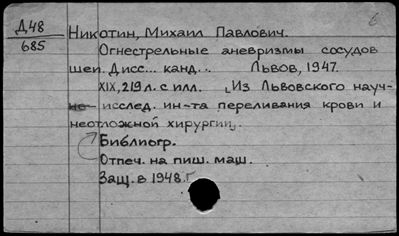 Д48
685
Никотин, Михаил Павлович.
Огнестрельные аневризмы сосудов
шеи. Дисс... канд... Львов, 1947.
XIX, 219 л. с илл. Из Львовского науч-
исслед. ин-та переливания крови и
неотложной хирургии.
Библиогр.
Отпеч. на пиш. маш.
Защ. в 1948 г.